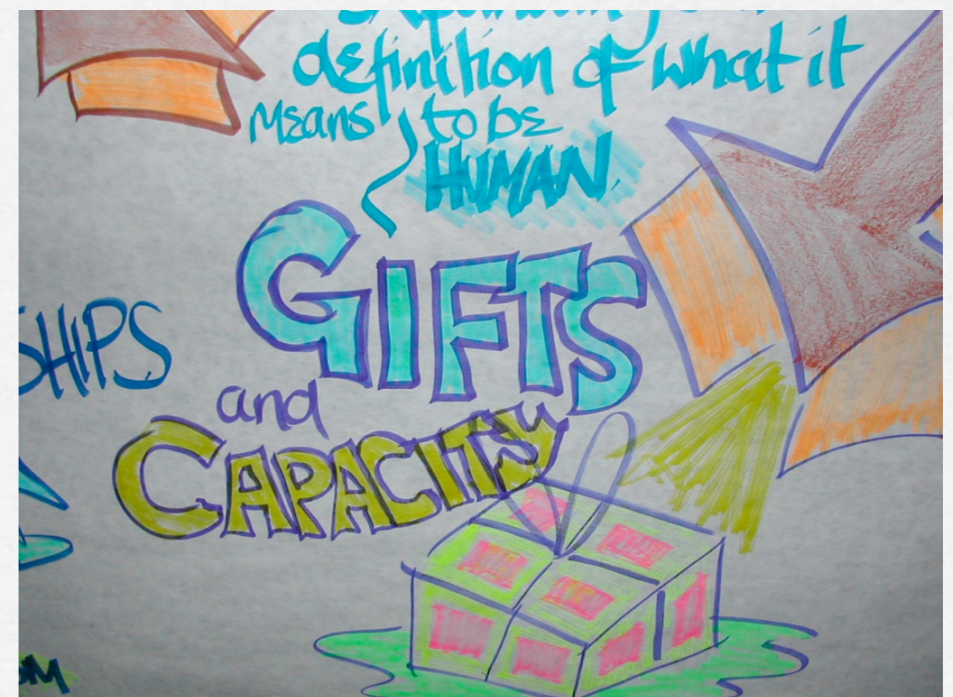 definition of what it
means to be
HUMAN.
GIFTS
SHIPS
and
CAPACITY